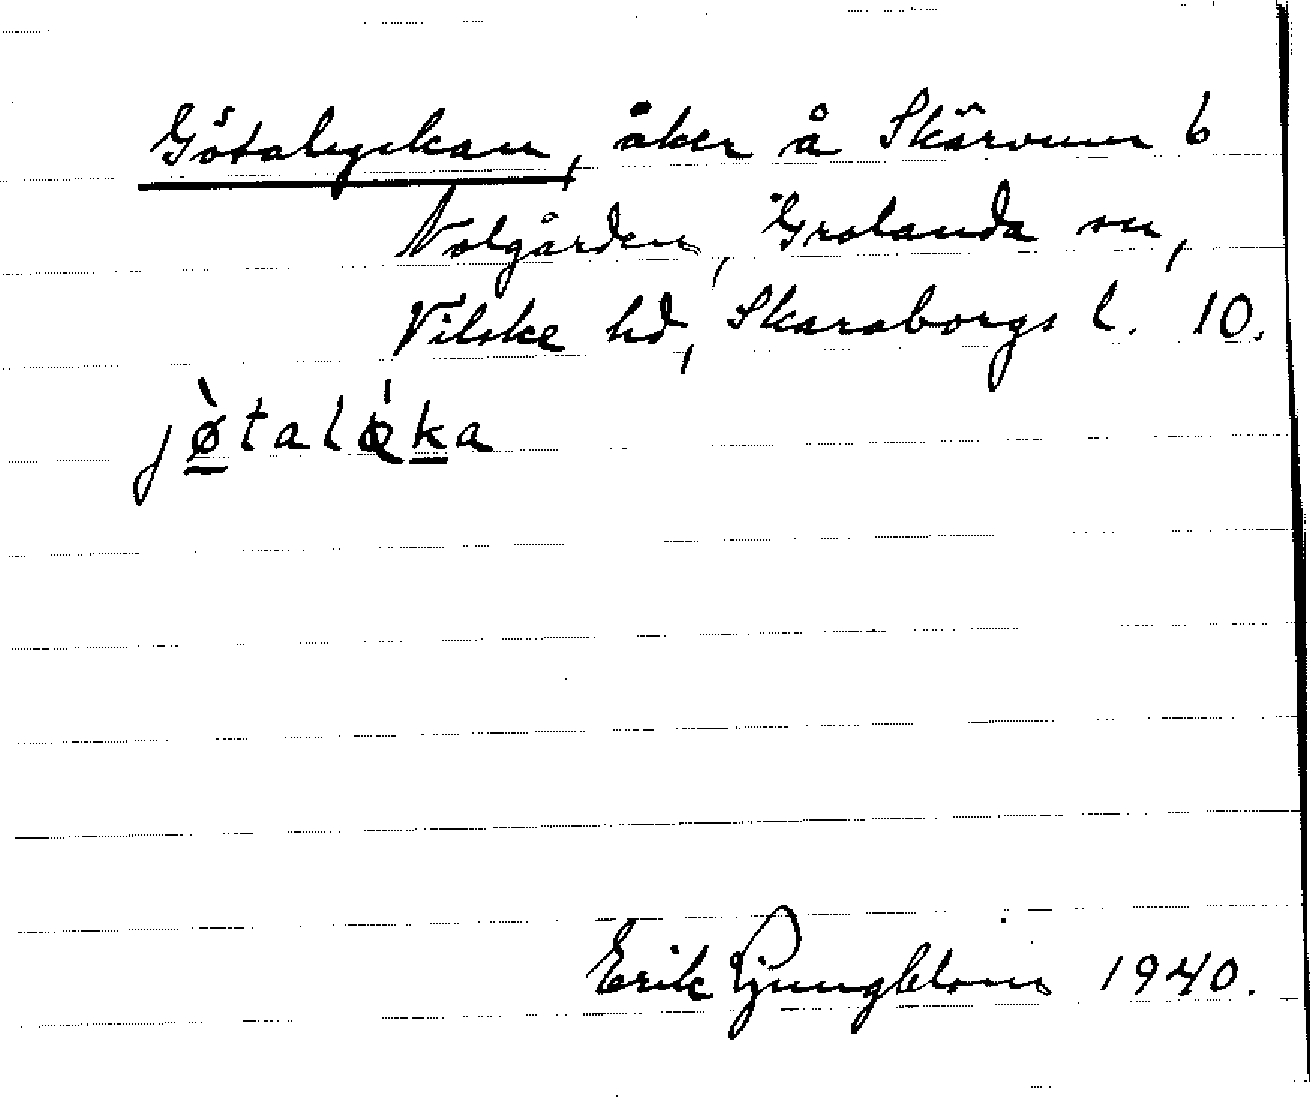 Götalyckan, åker å Skärvum 6
Nolgården, Grolanda sn,
Vilske hd, Skaraborgs l. 10.
jø̀taló̢ka
Erik Ljungblom 1940.